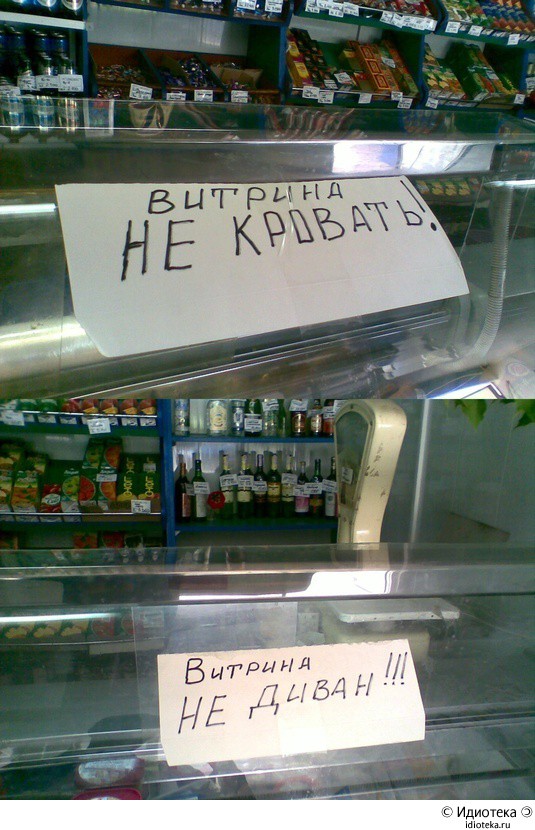 ВИТРИНА
НЕ КРОВАТЬ!
ВИТРИНА
НЕ ДИВАН!!!
© Идиотека
idioteka.ru